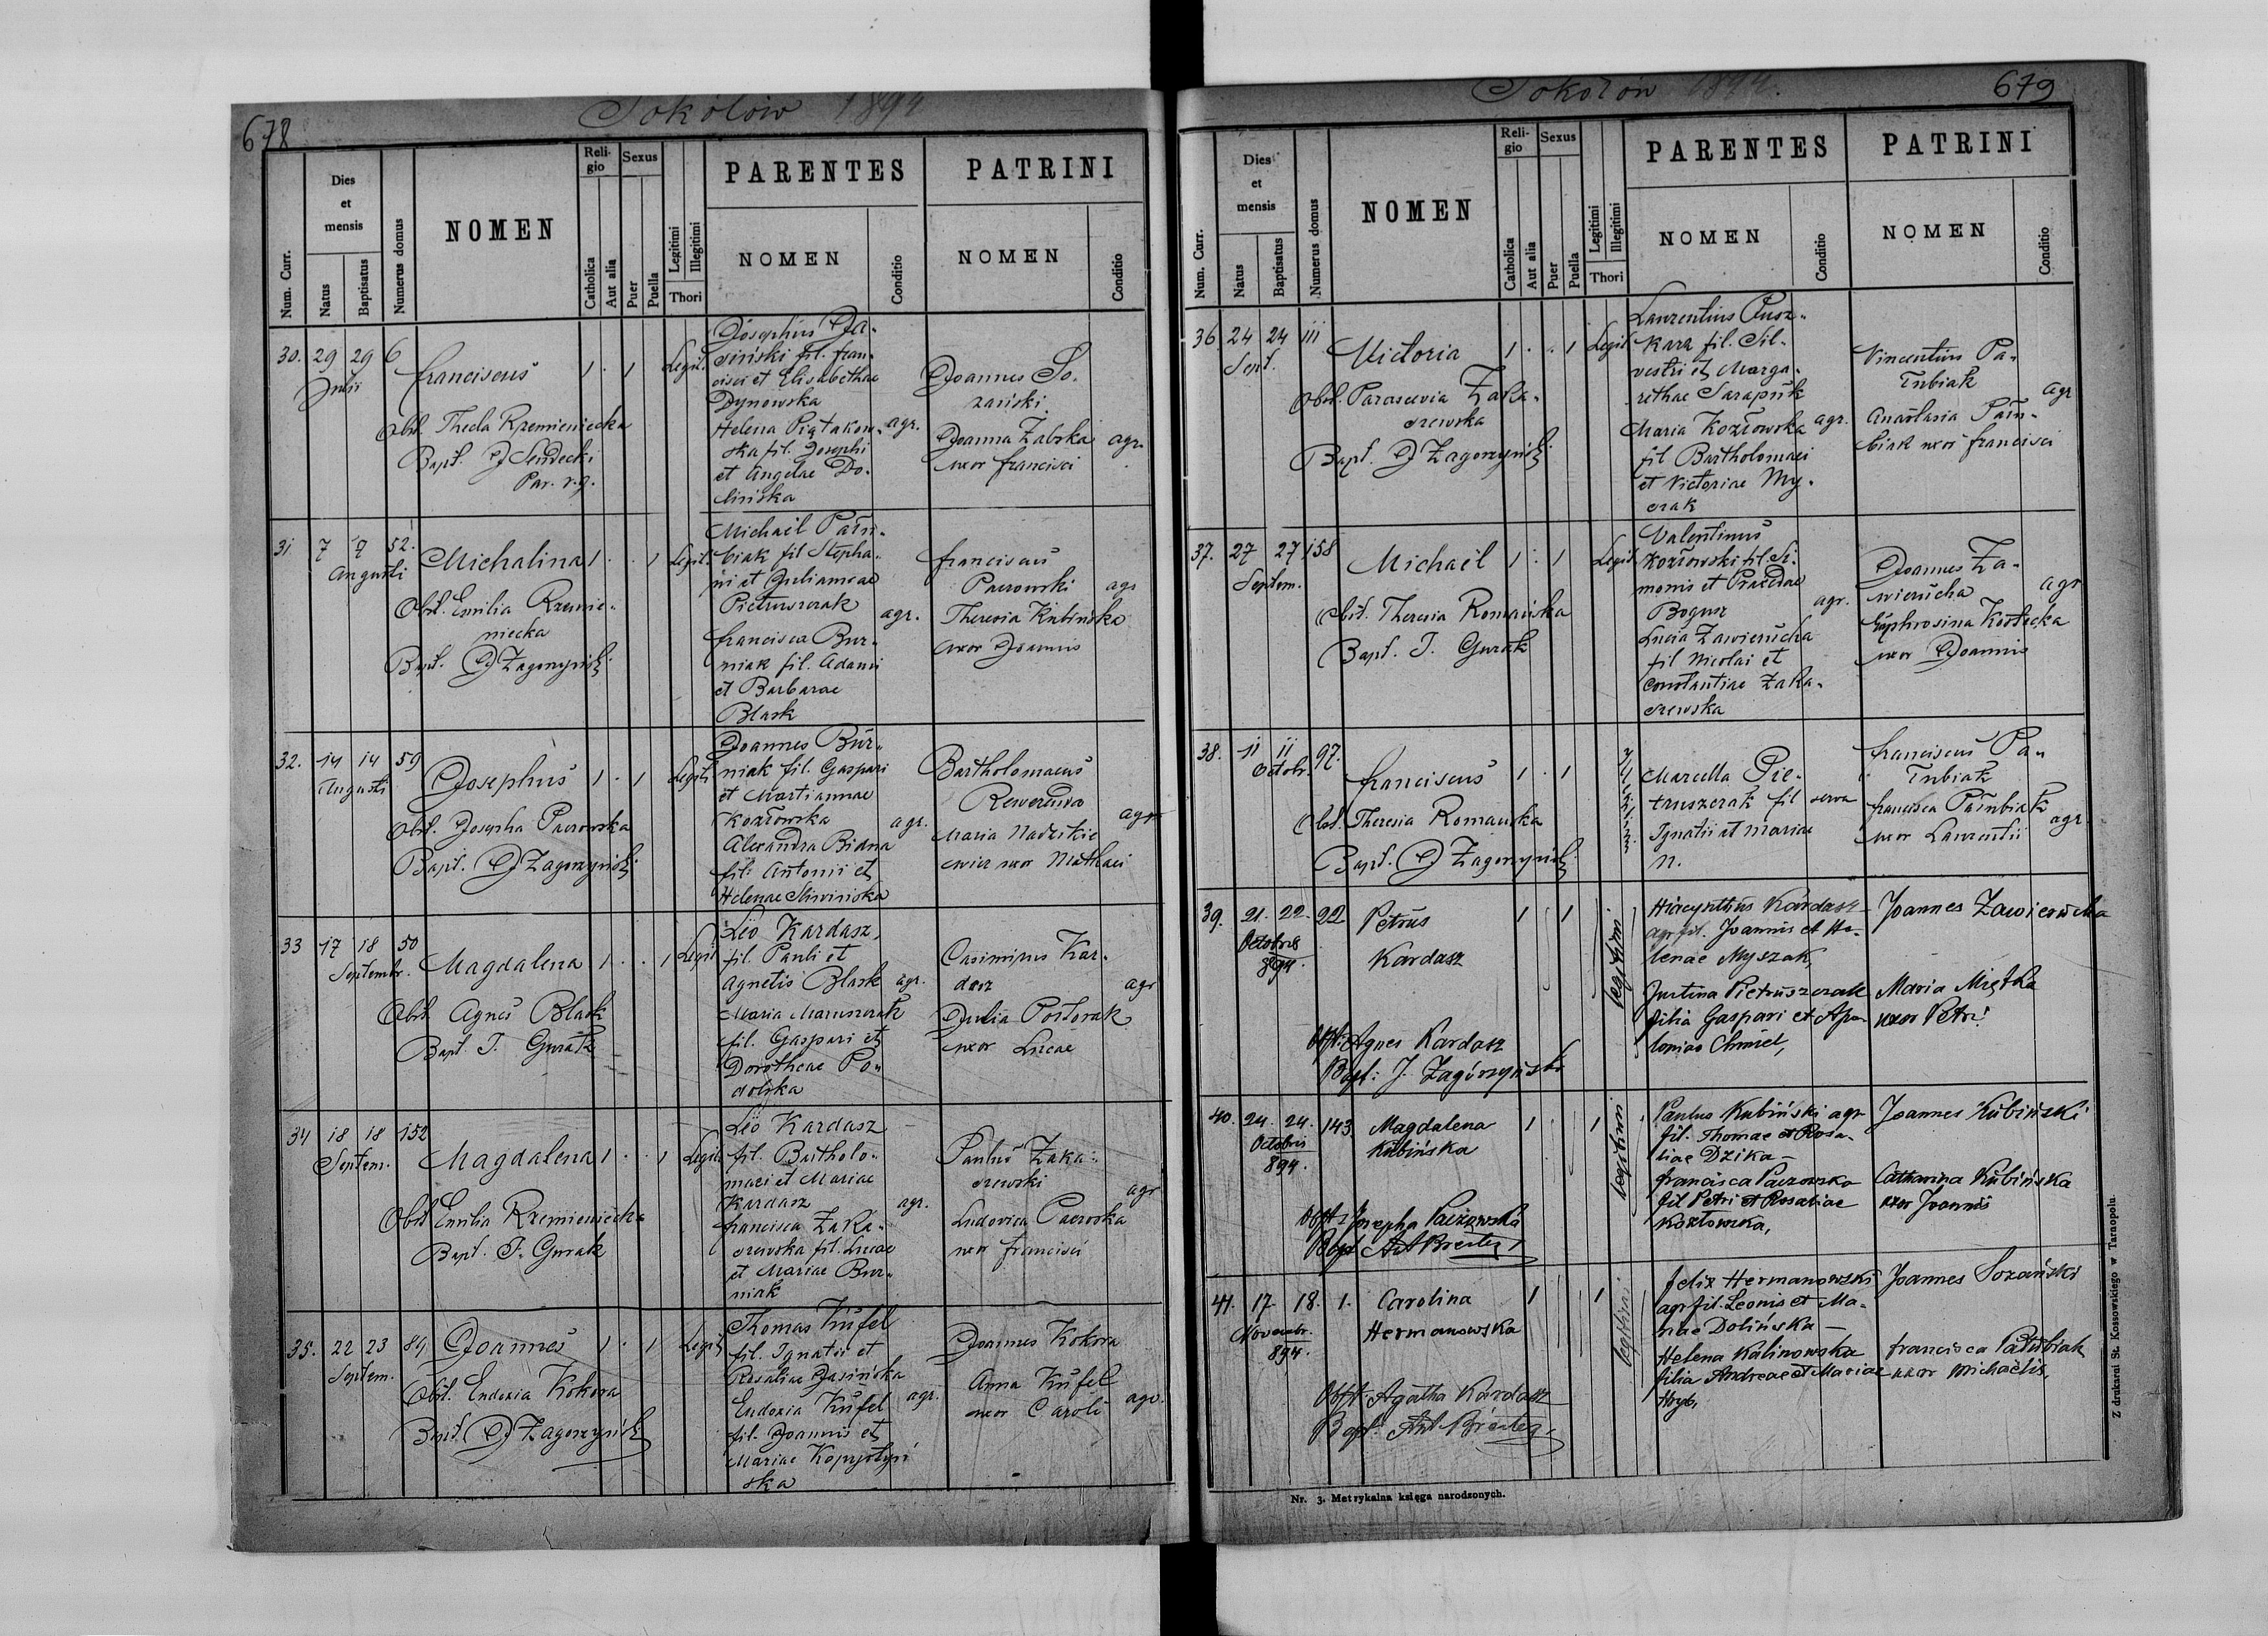 678
Sokołów 1894
Num. Curr.
Dies et mensis
Natus
Baptisatus
Numerus domus
NOMEN
Religio
Catholica
Aut alia
Sexus
Puer
Puella
Legitimi
Illegitimi
Thori
PARENTES
NOMEN
Conditio
PATRINI
NOMEN
Conditio
30. 29 29 6
Julii
Franciscus 1 . 1 Legit.
Obst. Thecla Krzemieniecka
Bapt. J Sendecki
Par. r.g.
Josephus Ja-
siński fil. Fran-
cisci et Elisabethae
Dynowska
Helena Piątakow- agr.
ska fil. Josephi
et Angelae Do-
lińska
Joannes So-
zański
Joanna Zabska agr.
uxor Francisci
31 7 7 52.
Augusti
Michalina 1 . . 1 Legit.
Obst. Emilia Krzemie-
niecka
Bapt. J Zagorzyński
Michaël Pału-
biak fil Stepha-
ni et Juliannae
Pietruszczak agr.
Francisca Bur-
niak fil. Adami
et Barbarae
Blask
Franciscus
Paczowski agr
Theresia Kubińska
uxor Joannis
32. 14 14 59
Augusti
Josephus 1 . 1 Legit.
Obst. Josepha Paczowska
Bapt. J Zagorzyński
Joannes Bur-
niak fil. Gaspari
et Martiannae
Kozłowska agr.
Alexandra Bidna
fil. Antonii et
Helenae Śliwińska
Bartholomaeus
Rewerenda agr
Maria Nadzikie
wicz uxor Mathaei
33 17 18 50
Septembr.
Magdalena 1 . . 1 Legit
Obst Agnes Blask
Bapt. J. Gurak
Leo Kardasz,
fil. Pauli et
Agnetis Blask agr.
Maria Maruszczak
fil. Gaspari et
Dorotheae Po-
dolska
Casimirus Kar-
dasz agr
Julia Postorak
uxor Lucae
34 18 18 152
Septem.
Magdalena 1 . . 1 Legit.
Obst Emilia Krzemieniecka
Bapt. J. Gurak
Leo Kardasz
fil. Bartholo-
maei et Mariae
Kardasz agr.
Francisca Zaka-
szewska fil. Lucae
et Mariae Bur-
niak
Paulus Zaka-
szewski agr
Ludovica Paczoska
uxor Francisci
35. 22 23 84
Septem.
Joannes 1 . 1 Legit.
Obst. Eudoxia Kokora
Bapt. J Zagorzyński
Thomas Kufel
fil. Ignatii et
Rosaliae Jasińska
Eudoxia Kufel agr.
fil. Joannis et
Mariae Kopystyń
ska
Joannes Kokora
Anna Kufel
uxor Caroli agr.
Sokołow 1894.
679
Num. Curr.
Dies et mensis
Natus
Baptisatus
Numerus domus
NOMEN
Religio
Catholica
Aut alia
Sexus
Puer
Puella
Legitimi
Illegitimi
Thori
PARENTES
NOMEN
Conditio
PATRINI
NOMEN
Conditio
36. 24 24 111
Sept.
Victoria 1 . . 1 Legit
Obst. Parascevia Zaka-
szewska
Bapt. J Zagorzyński
Laurentius Pusz-
kara fil. Sil-
vestri et Marga-
rethae Sarapuk
Maria Kozłowska agr.
fil Bartholomaei
et Victoriae My-
szak
Vincentius Pa-
łubiak agr
Anastasia Pału-
biak uxor Francisci
37. 27 27 158
Septem.
Michaël 1 . 1 Legit
Obst. Theresia Romańska
Bapt. J. Gurak
Valentinus
Kozłowski fil. Si-
monis et Praxedae
Bogusz agr.
Lucia Zawierucha
fil Nicolai et
Constantiae Zaka-
szewska
Joannes Za-
wierucha agr
Euphrosina Kostecka
uxor Joannis
38. 11 11 97.
Octobr.
Franciscus 1 . 1
Obst. Theresia Romanska
Bapt. J Zagorzyński
Marcella Pie-
truszczak fil serva
Ignatii et Mariae
N.
Franciscus Pa-
łubiak
Francisca Pałubiak agr.
uxor Laurentii
39. 21. 22. 22
Octobris
894.
Petrus 1 1 legitimi
Kardasz
Obst: Agnes Kardasz
Bapt: J. Zagórzyński
Hiacynthus Kardasz
agr fil. Joannis et He-
lenae Myszak,
Justina Pietruszczak
filia Gaspari et Apo-
loniae Chmiel,
Joannes Zawierowcha
Maria Miętka
uxor Petri
40. 24. 24. 143.
Octobris
894.
Magdalena 1 1 legitimi
Kubińska
Obst: Josepha Paczowska
Bapt
Paulus Kubiński agr
fil. Thomae et Rosa-
liae Dzika –
Francisca Paczowska
fil Petri et Rosaliae
Kozłowska,
Joannes Kubiński
Catharina Kubińska
uxor Joannis
41. 17. 18. 1.
Novembr.
894.
Carolina 1 1 legitimi
Hermanowska
Obst: Agatha Kardasz
Bapt:
Felix Hermanowski
agr fil. Leonis et Ma-
riae Dolińska –
Helena Kalinowska
filia Andreae et Mariae
Hryb,
Joannes Sozański
Francisca Pałubiak
uxor Michaelis,
Nr. 3. Metrykalna księga narodzonych.
Z drukarni St. Kossowskiego w Tarnopolu.